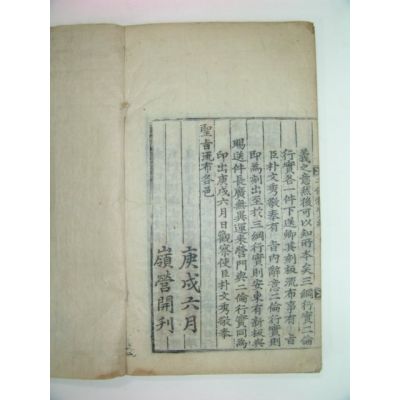 義之意然後可以知所本矣三綱行實二倫
行實各一件下送卿其刻板流布事有 旨
臣朴文秀敬奉有 旨內辭意二倫行實則
卽爲刻出至於三綱行實則安東有新板與
賜送件長廣無異運來營門與二倫行實同爲
印出庚戌六月日觀察使臣朴文秀敬奉
聖旨流布各邑
庚戌六月
嶺營開刊